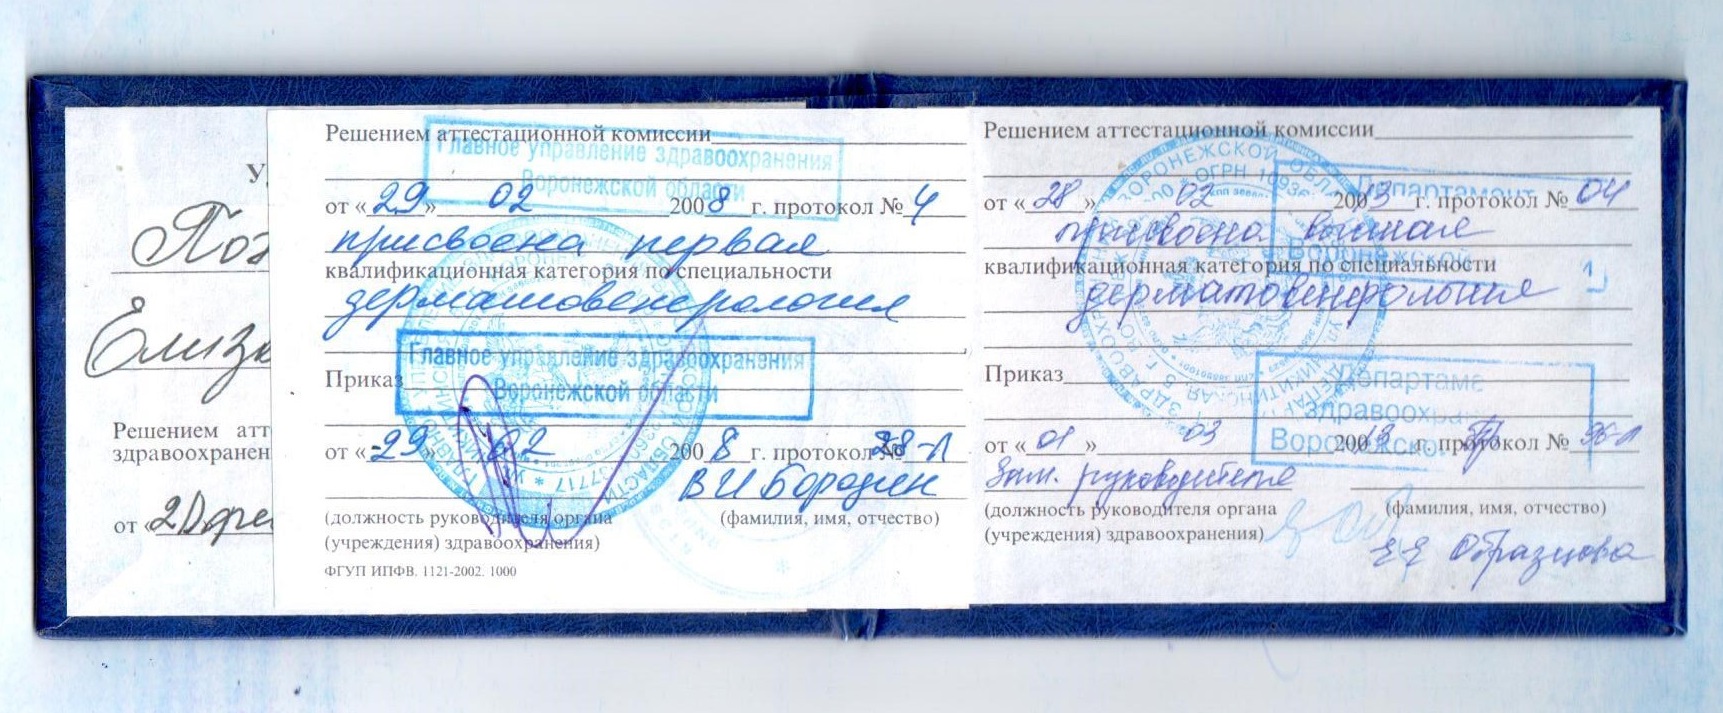 У
Поз
Елиза
Решением атт
здравоохранен
от «
Решением аттестационной комиссии
Главное управление здравоохранения
Воронежской области
от «29» 02 2008 г. протокол № 4
присвоена первая
квалификационная категория по специальности
дерматовенерология
Главное управление здравоохранения
Воронежской области
Приказ
от «29» 02 2008 г. протокол № 38-Л
В И Бородин
(должность руководителя органа
(фамилия, имя, отчество)
(учреждения) здравоохранения)
ФГУП ИПФВ. 1121-2002. 1000
Решением аттестационной комиссии
Департамент
от «28» 02 20013 г. протокол № 04
присвоена высшая
Воронежской
квалификационная категория по специальности
дерматовенерология
Департаме
здравоохра
Приказ
Воронежско
от «01» 03 20013 г. протокол № 36-Л
Зам. руководителя
(должность руководителя органа
(фамилия, имя, отчество)
(учреждения) здравоохранения)
Е Е Образцова